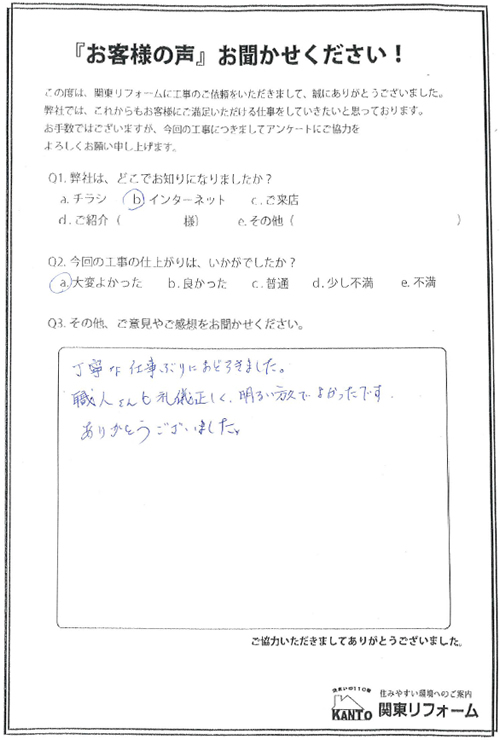 『お客様の声』お聞かせください！
この度は、関東リフォームに工事のご依頼をいただきまして、誠にありがとうございました。
弊社では、これからもお客様にご満足いただける仕事をしていきたいと思っております。
お手数ではございますが、今回の工事につきましてアンケートにご協力を
よろしくお願い申し上げます。
Q1. 弊社は、どこでお知りになりましたか？
a. チラシ b. インターネット c. ご来店
d. ご紹介（ 様） e. その他（ ）
Q2. 今回の工事の仕上がりは、いかがでしたか？
a. 大変よかった b. 良かった c. 普通 d. 少し不満 e. 不満
Q3. その他、ご意見やご感想をお聞かせください。
丁寧な仕事ぶりにおどろきました。
職人さんも礼儀正しく、明るい方々でよかったです。
ありがとうございました。
ご協力いただきましてありがとうございました。
住まいの110番
KANTO
住みやすい環境へのご案内
関東リフォーム